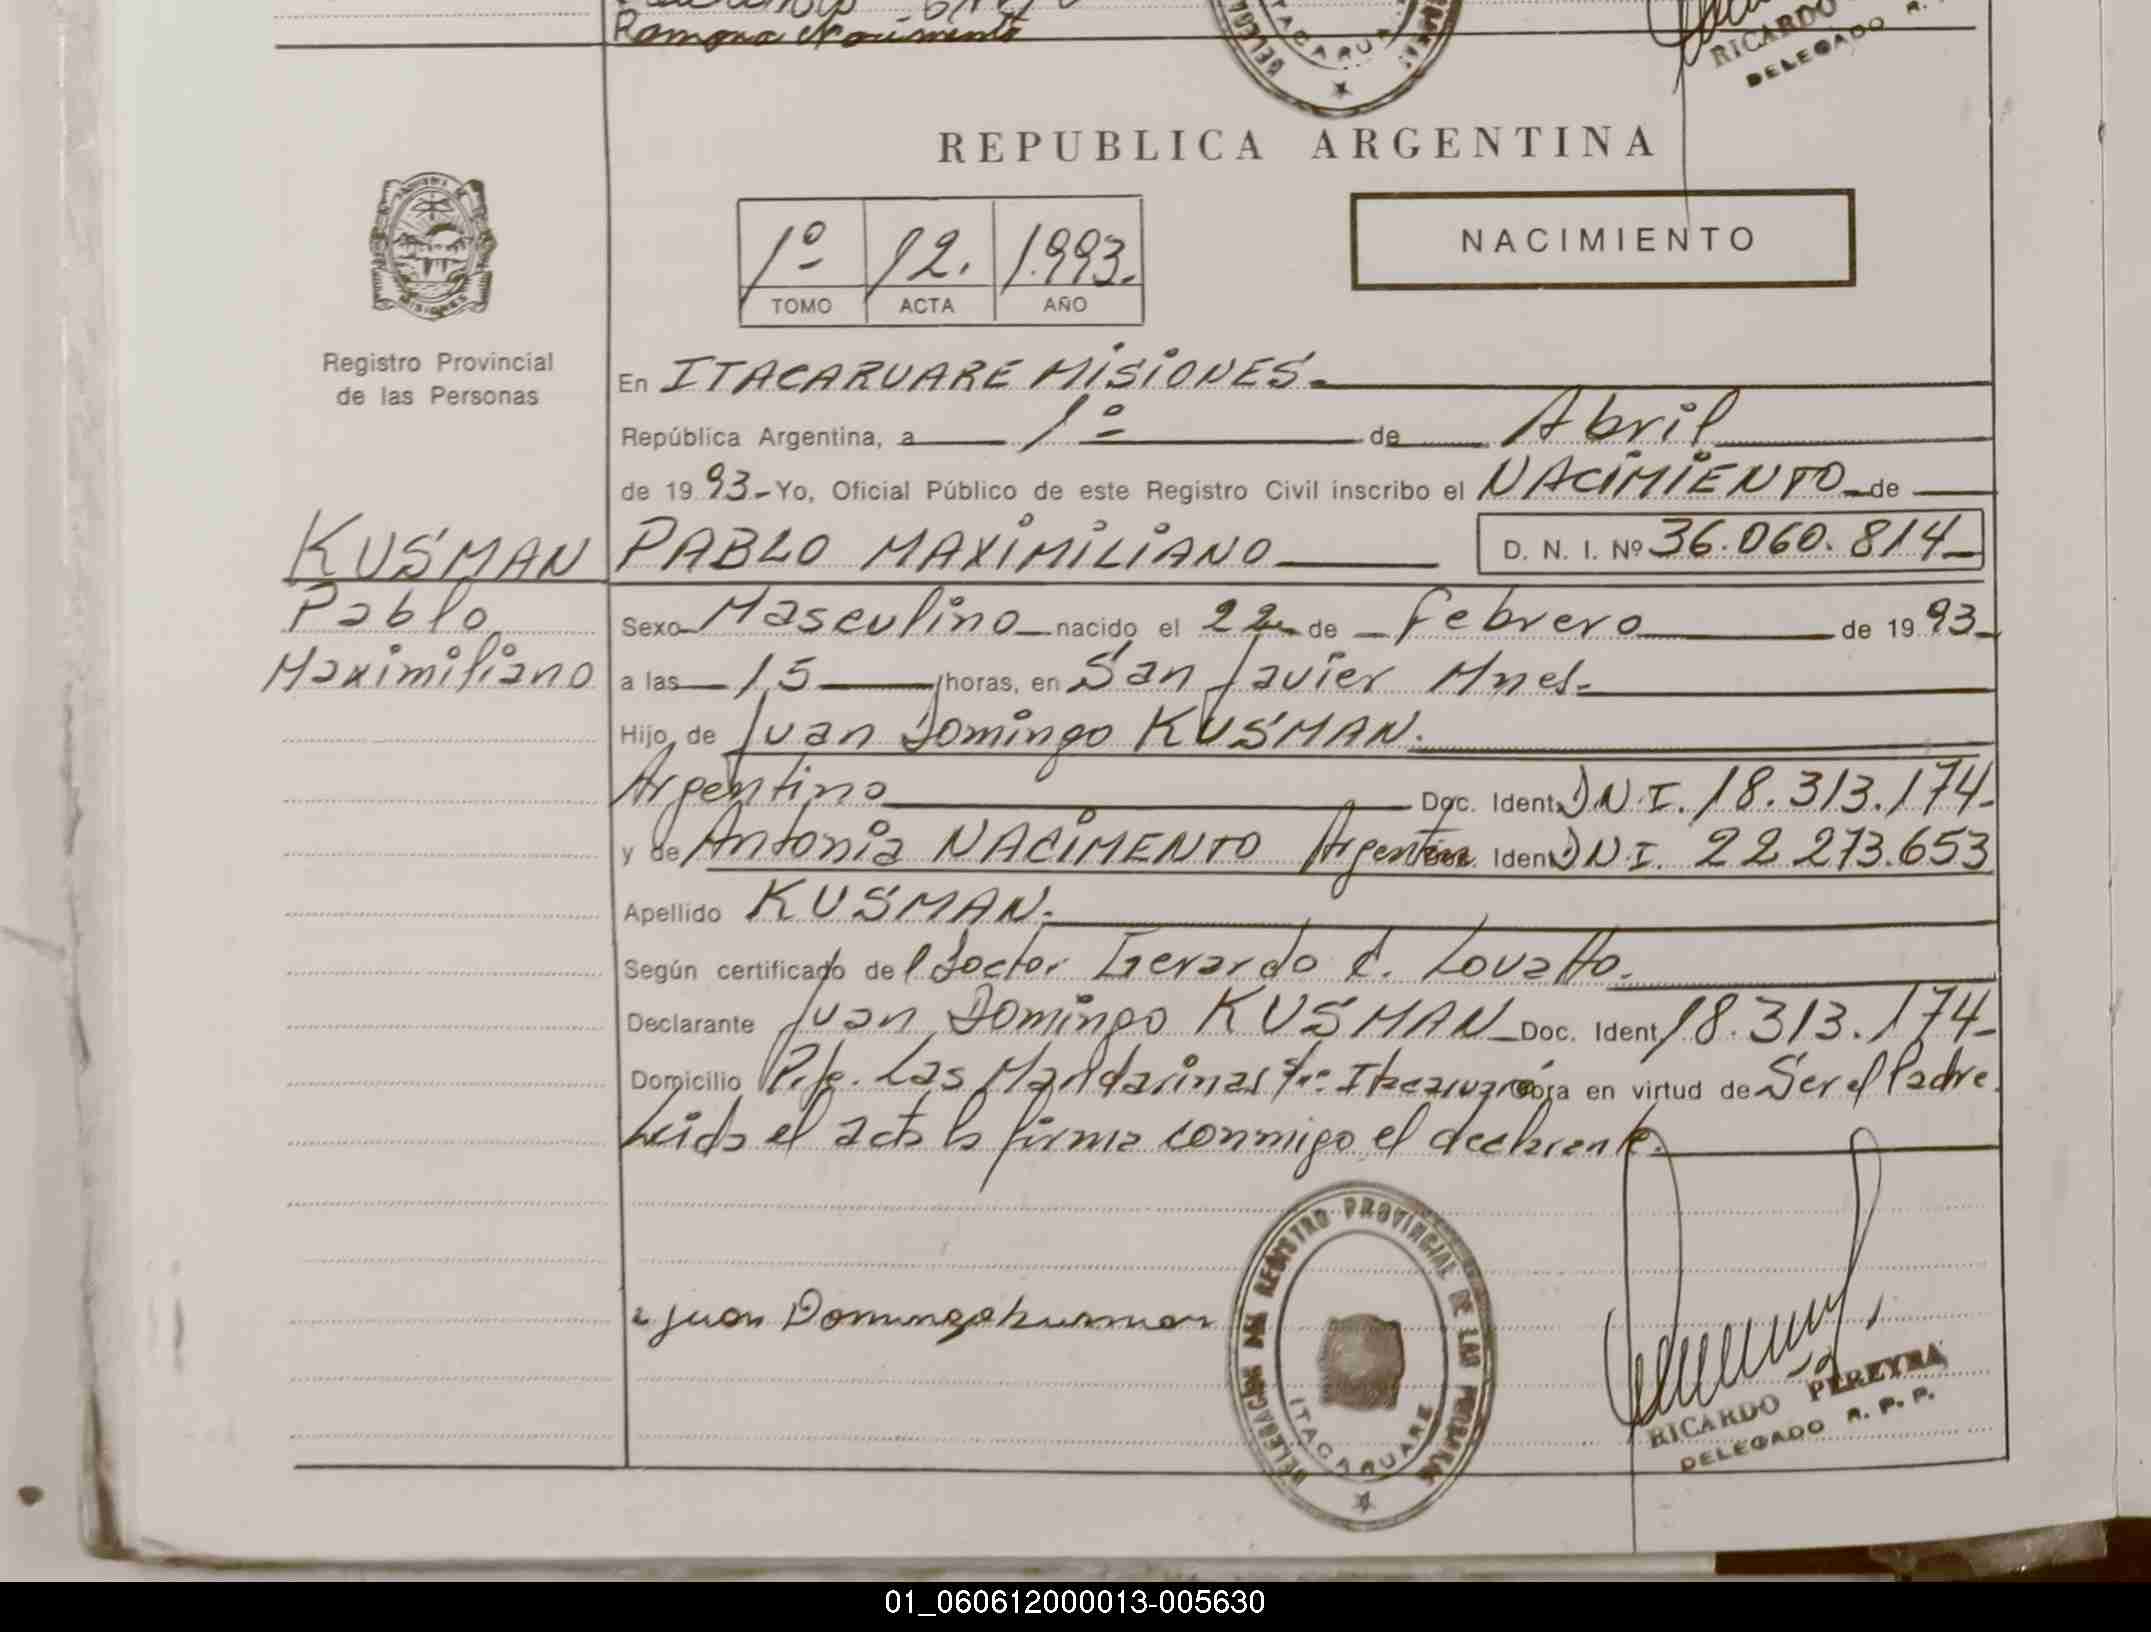 Ramona Nacimento
ITACARUA
RICARDO
DELEGADO R.
REPUBLICA ARGENTINA
1º 12. 1.993.
TOMO ACTA AÑO
NACIMIENTO
MISIONES
Registro Provincial
de las Personas
En ITACARUARE MISIONES.
República Argentina, a 1º de Abril
de 1993-Yo, Oficial Público de este Registro Civil inscribo el NACIMIENTO de
KUSMAN PABLO MAXIMILIANO D. N. I. Nº 36.060.814
Pablo
Maximiliano
Sexo Masculino nacido el 22 de Febrero de 1993
a las 15 horas, en San Javier Mnes.
Hijo de Juan Domingo KUSMAN.
Argentino Doc. Ident. DN.I. 18.313.174-
y de Antonia NACIMENTO Argentina Doc. Ident. DN.I. 22.273.653
Apellido KUSMAN.
Según certificado del Doctor Gerardo C. Lovatto.
Declarante Juan Domingo KUSMAN Doc. Ident. 18.313.174-
Domicilio Pje. Las Mandarinas Itacaruaré obra en virtud de Ser el Padre.
Leida el acta la firma conmigo el declarante.
Juan Domingo Kusman
DELEGACION DEL REGISTRO PROVINCIAL DE LAS PERSONAS
ITACARUARE
RICARDO PEREYRA
DELEGADO R. P. P.
01_060612000013-005630